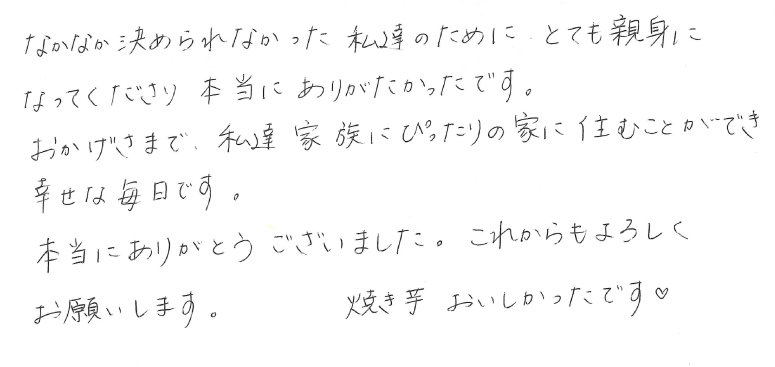 なかなか決められなかった 私達のために とても親身に
なってくださり 本当に ありがたかったです。
おかげさまで、私達 家族にぴったりの家に住むことができ
幸せな毎日です。
本当にありがとう ございました。これからもよろしく
お願いします。 焼き芋 おいしかったです♡